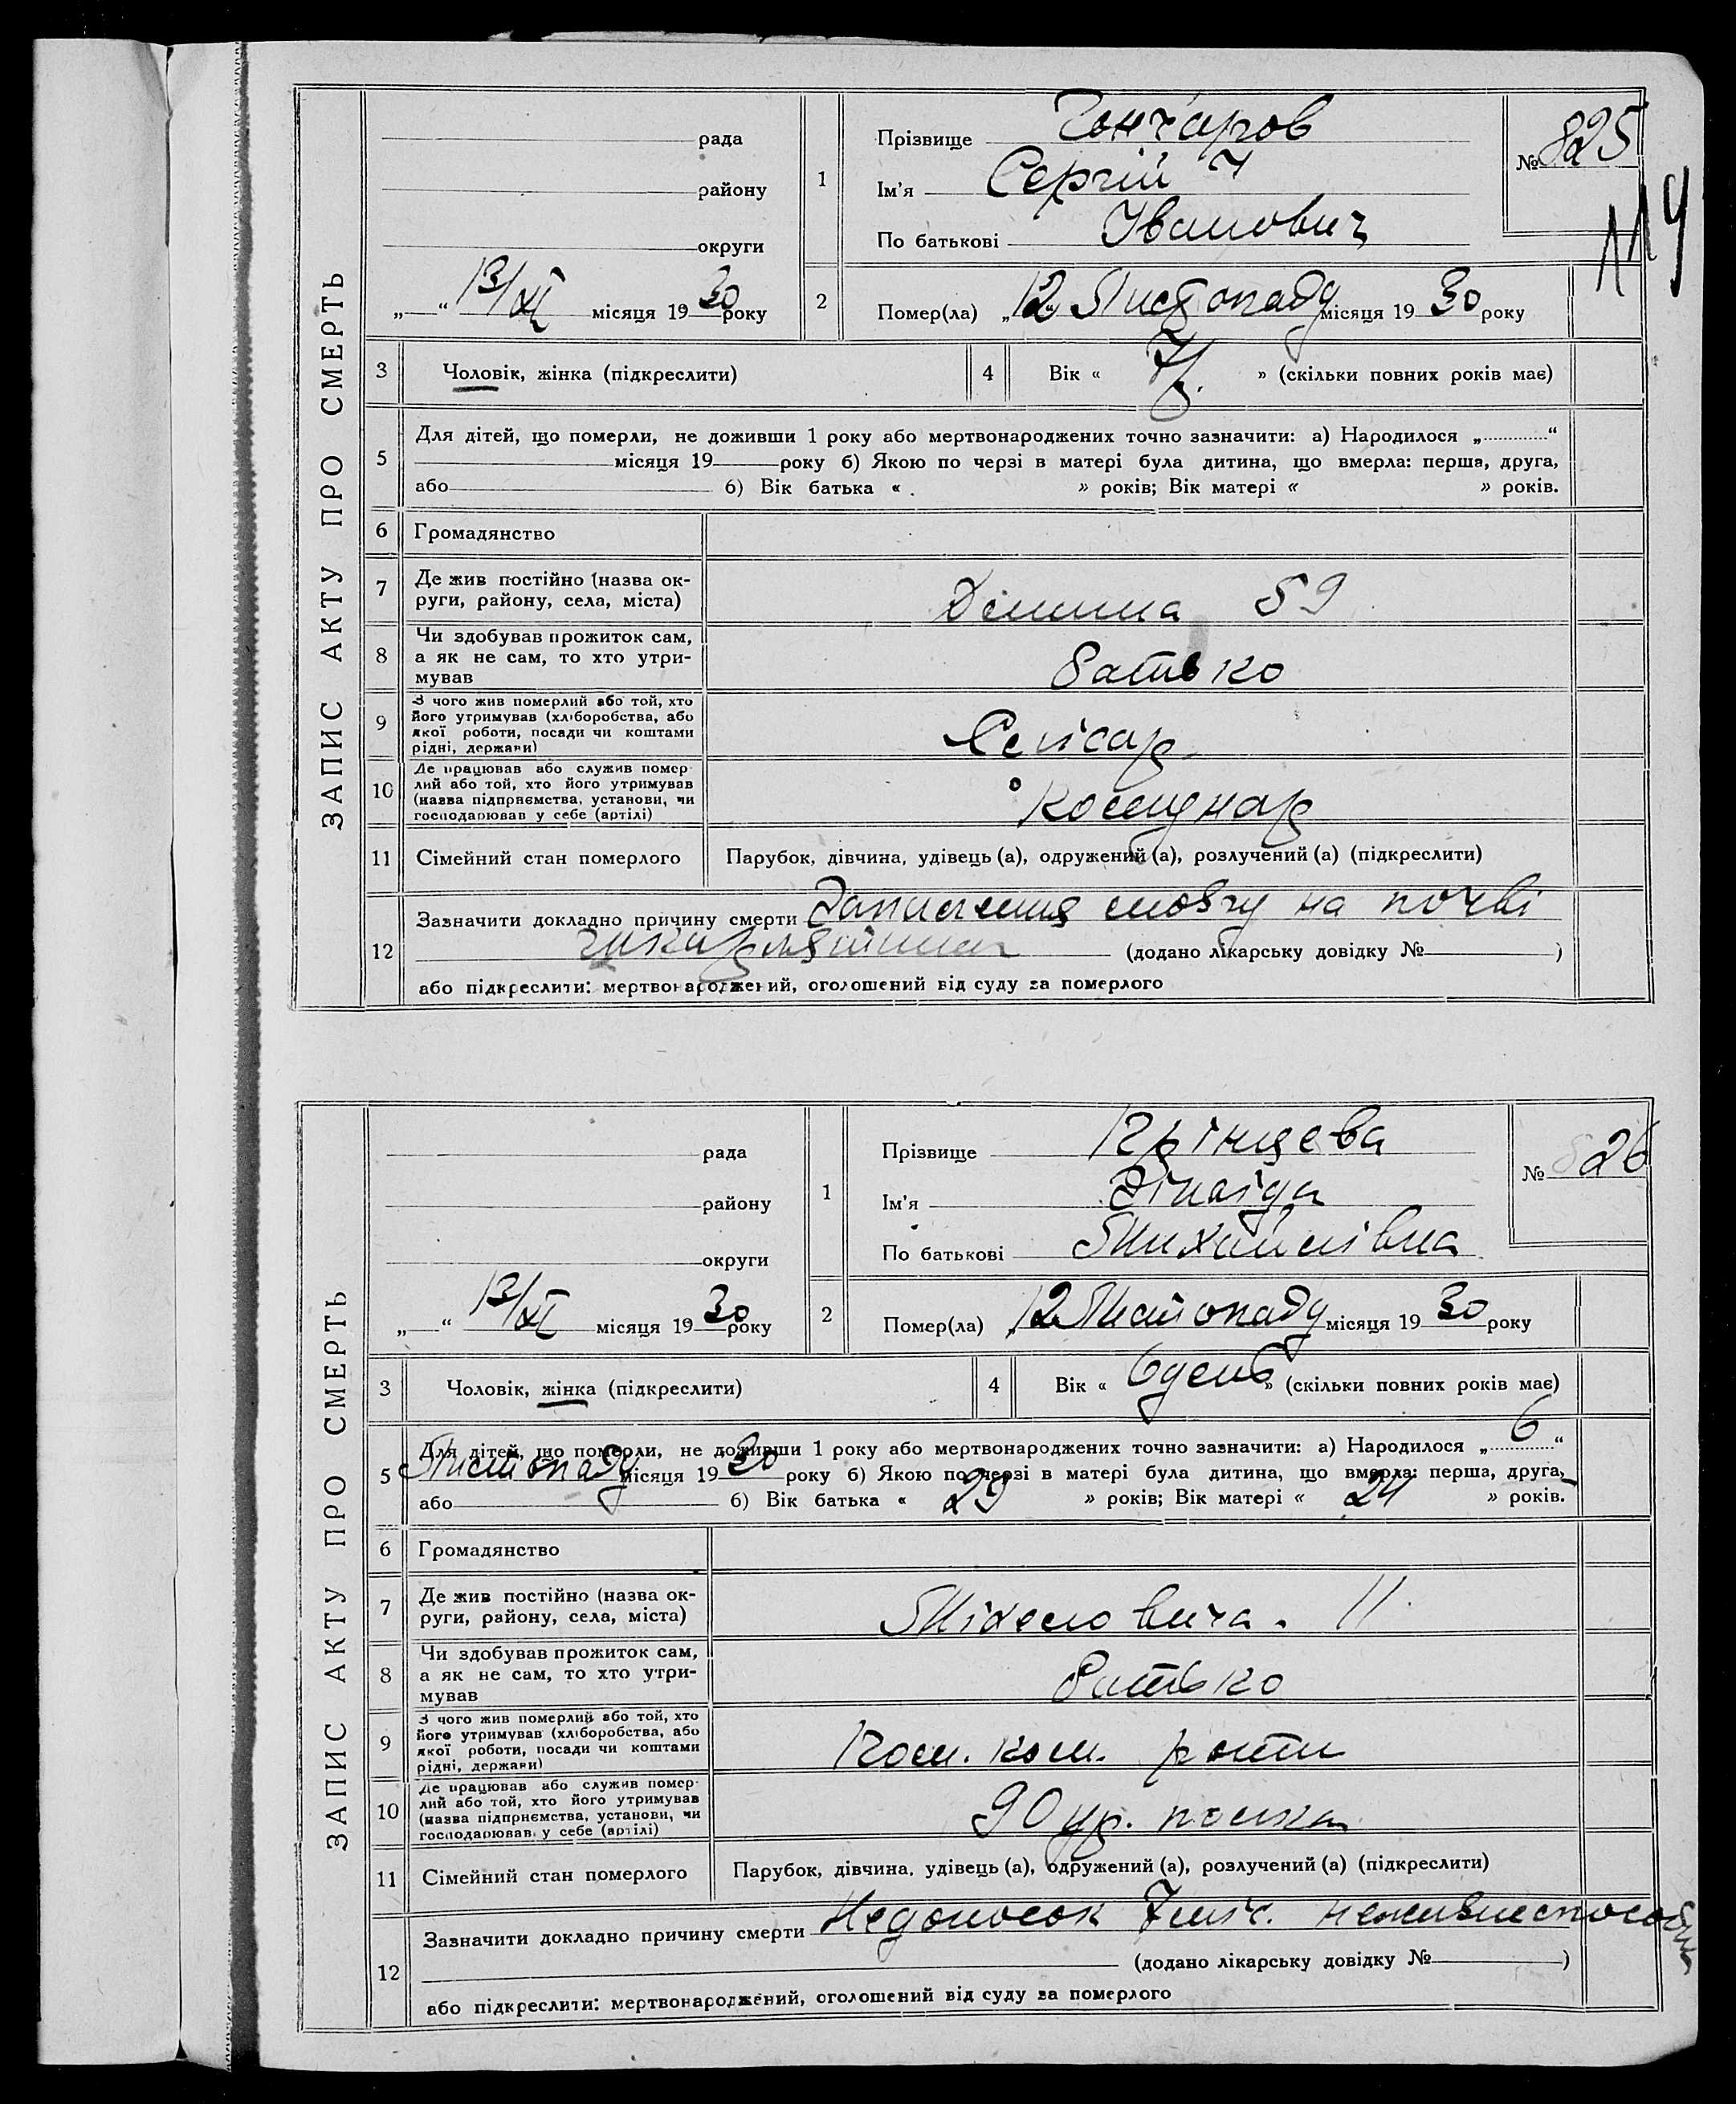 ЗАПИС АКТУ ПРО СМЕРТЬ
рада
району
округи
„ “ 13/XI місяця 1930 року
1
Прізвище Гончаров
Ім'я Сергій
По батькові Іванович
№ 825
2
Помер(ла) „12 Листопаду місяця 1930 року
3 Чоловік, жінка (підкреслити)
4 Вік « » (скільки повних років має)
5 Для дітей, що померли, не доживши 1 року або мертвонароджених точно зазначити: а) Народилося „ “
місяця 19 року б) Якою по черзі в матері була дитина, що вмерла: перша, друга,
або б) Вік батька « » років; Вік матері « » років.
6 Громадянство
7 Де жив постійно (назва ок-
руги, району, села, міста)
59
8 Чи здобував прожиток сам,
а як не сам, то хто утри-
мував
батько
9 З чого жив померлий або той, хто
його утримував (хліборобства, або
якої роботи, посади чи коштами
рідні, держави)
Слісар
10 Де працював або служив помер-
лий або той, хто його утримував
(назва підприємства, установи, чи
господарював у себе (артілі)
Комунар
11 Сімейний стан померлого
Парубок, дівчина, удівець (а), одружений (а), розлучений (а) (підкреслити)
12 Зазначити докладно причину смерти Запалення мозгу на почві
скарлятини (додано лікарську довідку № )
або підкреслити: мертвонароджений, оголошений від суду за померлого
ЗАПИС АКТУ ПРО СМЕРТЬ
рада
району
округи
„ “ 13/XI місяця 1930 року
1
Прізвище
Ім'я Зінаїда
По батькові Михайлівна
№ 826
2
Помер(ла) „12 Листопаду місяця 1930 року
3 Чоловік, жінка (підкреслити)
4 Вік « 6 день » (скільки повних років має)
5 Для дітей, що померли, не доживши 1 року або мертвонароджених точно зазначити: а) Народилося „ 6 “
Листопаду місяця 1930 року б) Якою по черзі в матері була дитина, що вмерла: перша, друга,
або б) Вік батька « 29 » років; Вік матері « 24 » років.
6 Громадянство
7 Де жив постійно (назва ок-
руги, району, села, міста)
11
8 Чи здобував прожиток сам,
а як не сам, то хто утри-
мував
батько
9 З чого жив померлий або той, хто
його утримував (хліборобства, або
якої роботи, посади чи коштами
рідні, держави)
Пом. ком. роти
10 Де працював або служив помер-
лий або той, хто його утримував
(назва підприємства, установи, чи
господарював у себе (артілі)
90 полка
11 Сімейний стан померлого
Парубок, дівчина, удівець (а), одружений (а), розлучений (а) (підкреслити)
12 Зазначити докладно причину смерти Недоносок 7 міс.
(додано лікарську довідку № )
або підкреслити: мертвонароджений, оголошений від суду за померлого